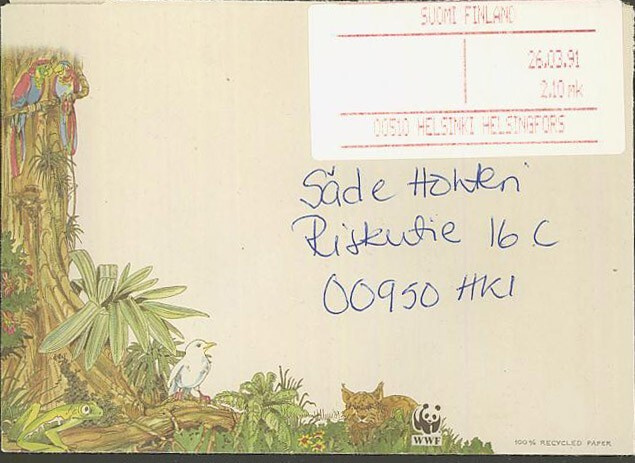 SUOMI FINLAND
26.03.91
2.10 mk
00510 HELSINKI HELSINGFORS
Säde Hohteri
Riskutie 16 C
00950 HKI
WWF
100% RECYCLED PAPER